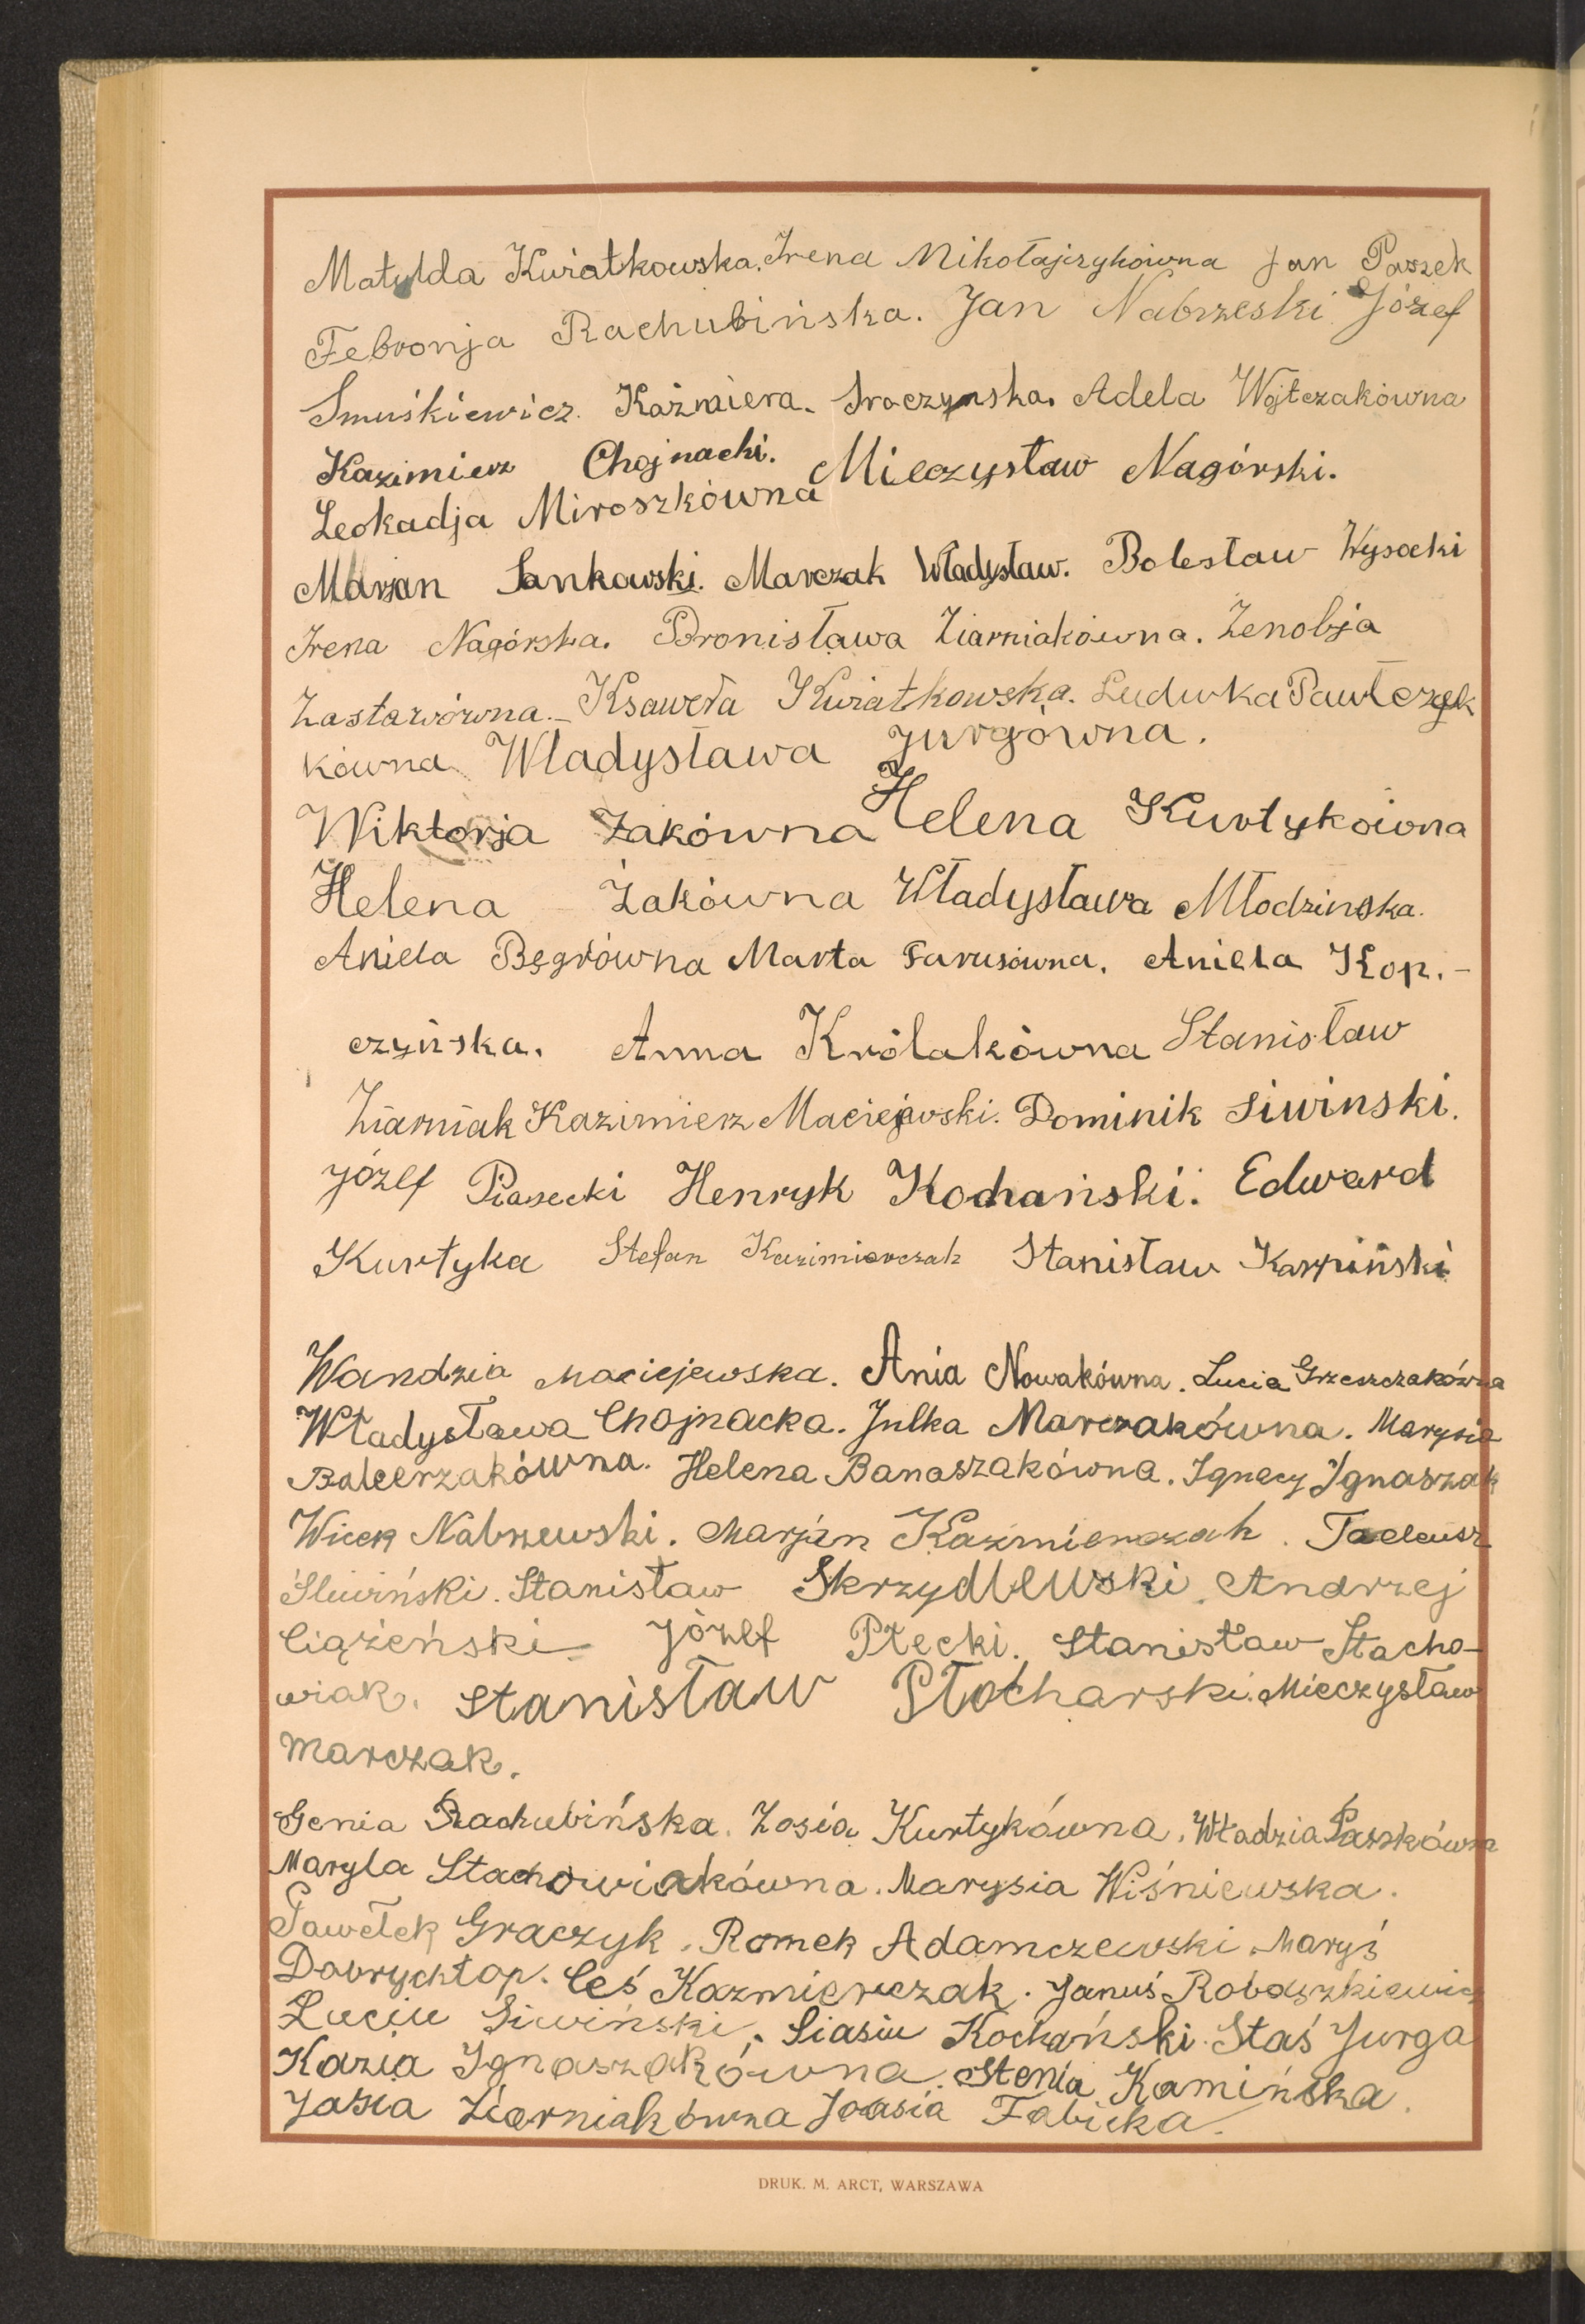 Matylda Kwiatkowska. Irena Mikołajczykówna Jan Paszek
Febronja Rachubińska. Jan Nabrzeski Józef
Smuśkiewicz. Kaźmiera. Sroczynska. Adela Wojtczakówna
Kazimierz Chojnacki. Mieczysław Nagórski.
Leokadja Miroszkówna
Marjan Jankowski. Marczak Władysław. Bolesław Wysocki
Irena Nagórska. Bronisława Ziarniakówna. Zenobja
Zastawówna. Ksawera Kwiatkowska. Ludwka Pawłczyk
kówna Władysława Jurgówna.
Wiktorja Żakówna Helena Kurtykówna
Helena Żakówna Władysława Młodzinska.
Aniela Bęgrówna Marta Farusówna. Aniela Kop.-
czyńska. Anna Królakówna Stanisław
Ziarniak Kazimierz Maciejewski. Dominik Siwinski.
Józef Piasecki Henryk Kochański. Edward
Kurtyka Stefan Kazimierczak Stanisław Karpiński
Wandzia Maciejewska. Ania Nowakówna. Lucia Grzeszczakówna
Władysława Chojnacka. Julka Marczakówna. Marysia
Balcerzakówna. Helena Banaszakówna. Ignacy Ignaszak
Wicek Nabrzewski. Marjan Kaźmierczak. Tadeusz
Śliwiński. Stanisław Skrzydlewski. Andrzej
Ciążeński. Józef Płecki. Stanisław Stacho-
wiak. Stanisław Płocharski. Mieczysław
Marczak.
Genia Rachubińska. Zosia Kurtykówna. Władzia Paszkówna
Maryla Stachowiakówna. Marysia Wiśniewska.
Pawełek Graczyk. Romek Adamczewski. Maryś
Dobrychłop. Ceś Kazmierczak. Januś Robaszkiewicz
Luciu Siwiński. Siasiu Kochański. Staś Jurga
Kazia Ignaszakówna. Stenia Kamińska.
Jasia Ziarniakówna Joasia Fabicka.
DRUK. M. ARCT, WARSZAWA